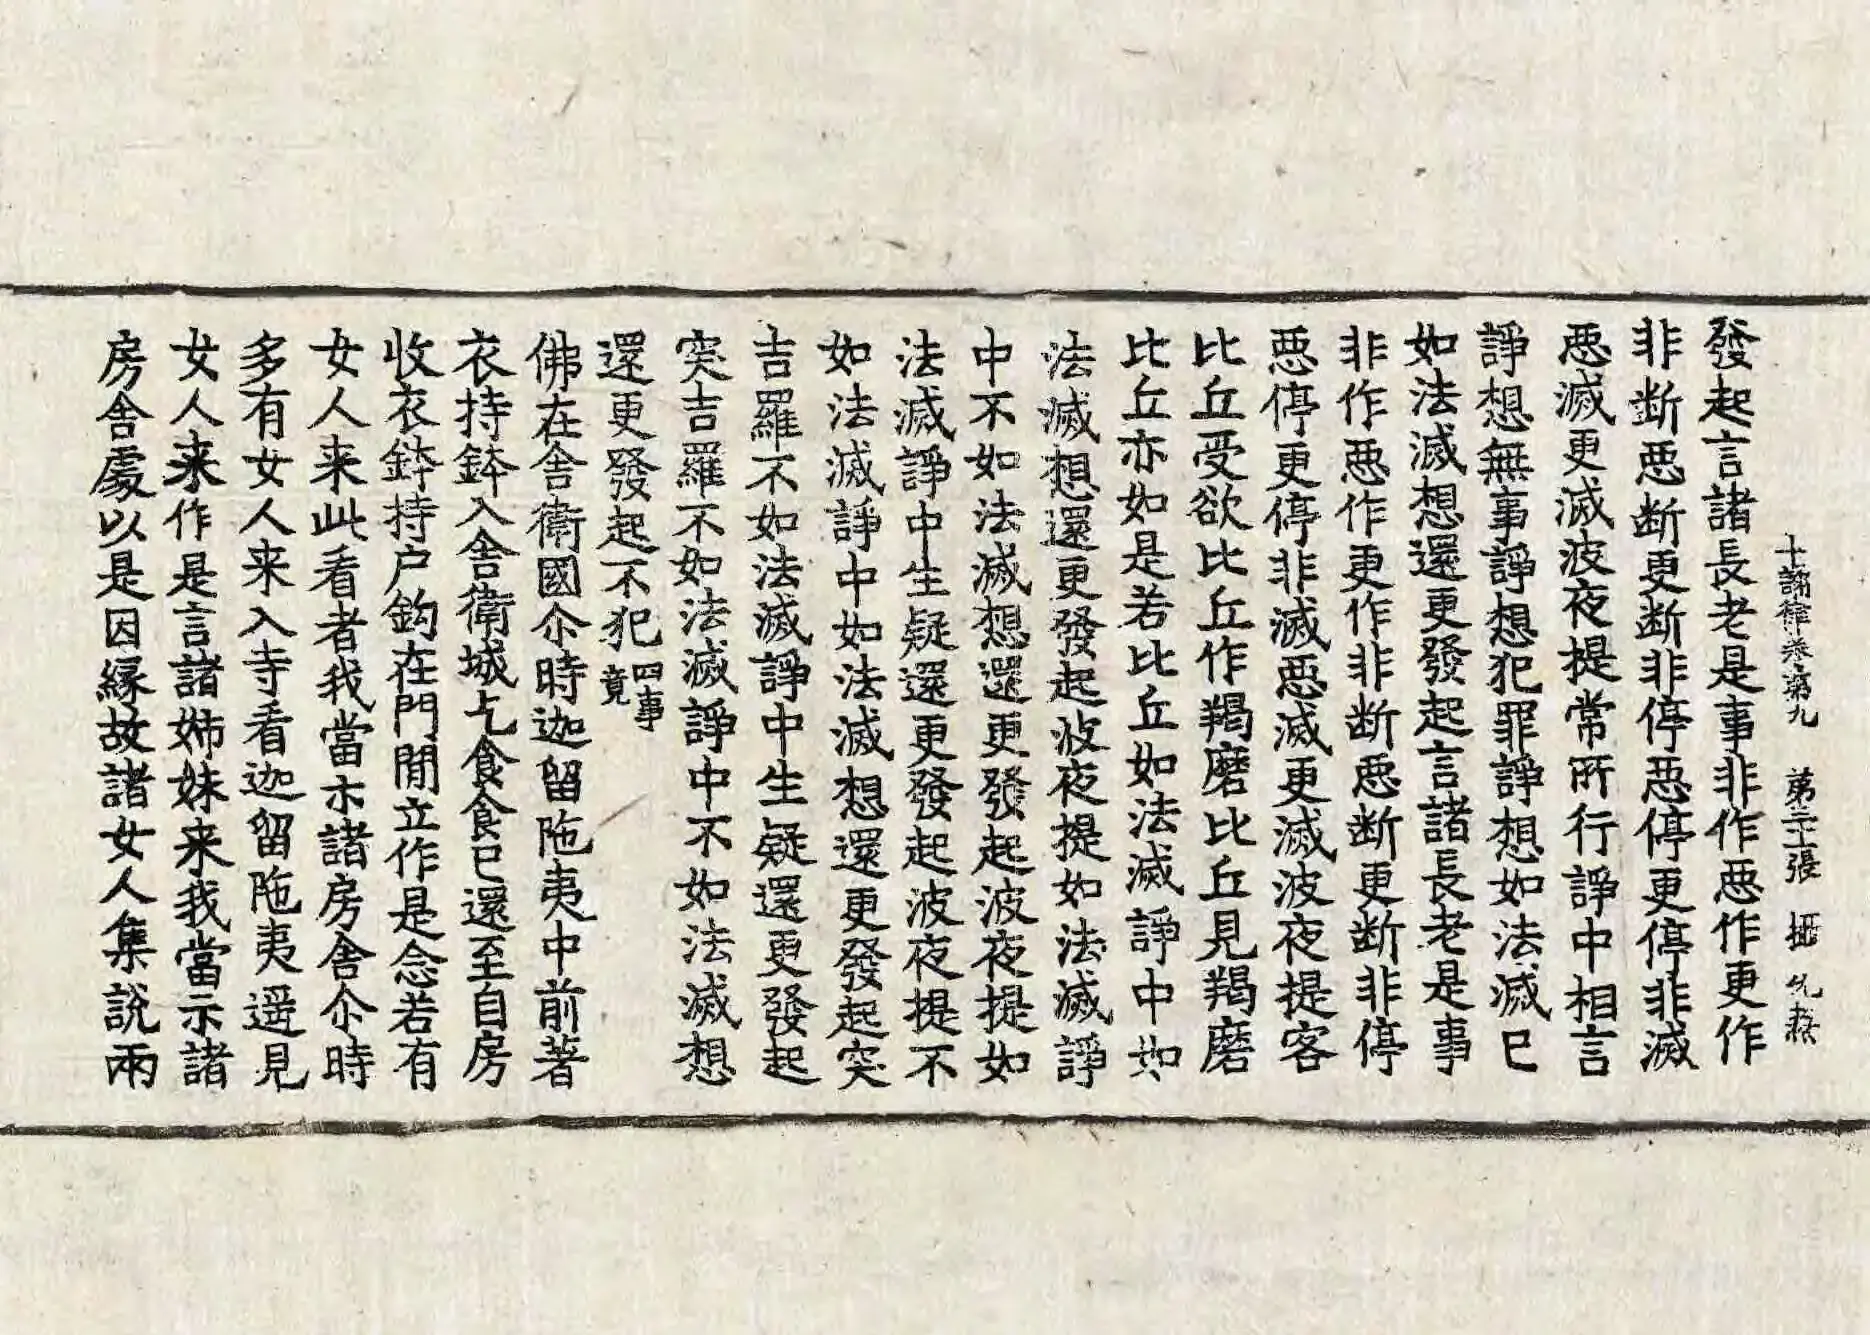 十誦律卷第九 第二十張 攝
發起言諸長老是事非作惡作更作
非斷惡斷更斷非停惡停更停非滅
惡滅更滅波夜提常所行諍中相言
諍想無事諍想犯罪諍想如法滅已
如法滅想還更發起言諸長老是事
非作惡作更作非斷惡斷更斷非停
惡停更停非滅惡滅更滅波夜提客
比丘受欲比丘作羯磨比丘見羯磨
比丘亦如是若比丘如法滅諍中如
法滅想還更發起波夜提如法滅諍
中不如法滅想還更發起波夜提如
法滅諍中生疑還更發起波夜提不
如法滅諍中如法滅想還更發起突
吉羅不如法滅諍中生疑還更發起
突吉羅不如法滅諍中不如法滅想
還更發起不犯四事竟
佛在舍衛國尒時迦留陁夷中前著
衣持鉢入舍衛城乞食食已還至自房
收衣鉢持户鈎在門閒立作是念若有
女人来此看者我當示諸房舍尒時
多有女人来入寺看迦留陁夷遥見
女人来作是言諸姊妹来我當示諸
房舍處以是因縁故諸女人集說兩